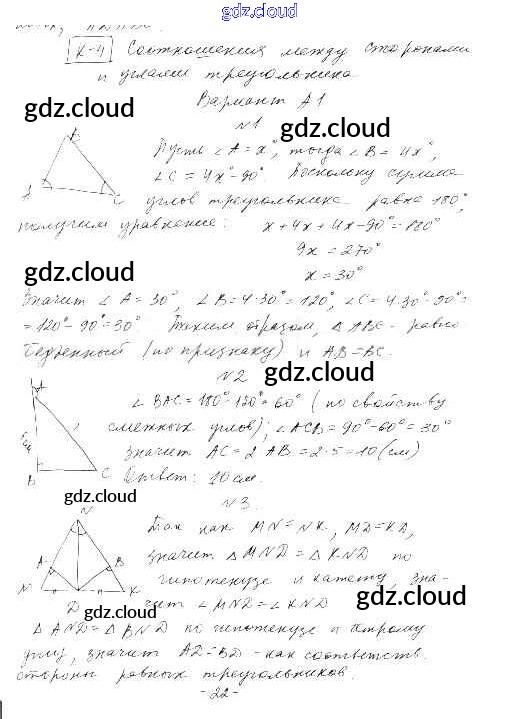 gdz.cloud
К-4 Соотношения между сторонами
и углами треугольника
Вариант А1
№1
gdz.cloud
gdz.cloud
B
A
C
Пусть ∠A = x°, тогда ∠B = 4x°,
∠C = 4x° - 90°. Поскольку сумма
углов треугольника равна 180°,
получим уравнение: x + 4x + 4x - 90° = 180°
9x = 270°
x = 30°
gdz.cloud
gdz.cloud
Значит ∠A = 30°, ∠B = 4·30° = 120°, ∠C = 4·30° - 90° =
= 120° - 90° = 30°. Таким образом, △ABC - равно-
бедренный (по признаку) и AB = BC.
№2
gdz.cloud
∠BAC = 180° - 120° = 60° (по свойству
смежных углов); ∠ACB = 90° - 60° = 30°
значит AC = 2AB = 2·5 = 10 (см)
Ответ: 10 см.
A
B
C
gdz.cloud
№3
N
A
B
M
D
K
Так как MN = NK, MD = KD,
значит △MND = △KND по
гипотенузе и катету, зна-
чит ∠MND = ∠KND
gdz.cloud
gdz.cloud
△AND = △BND по гипотенузе и острому
углу, значит AD = BD - как соответств.
стороны равных треугольников.
- 22 -